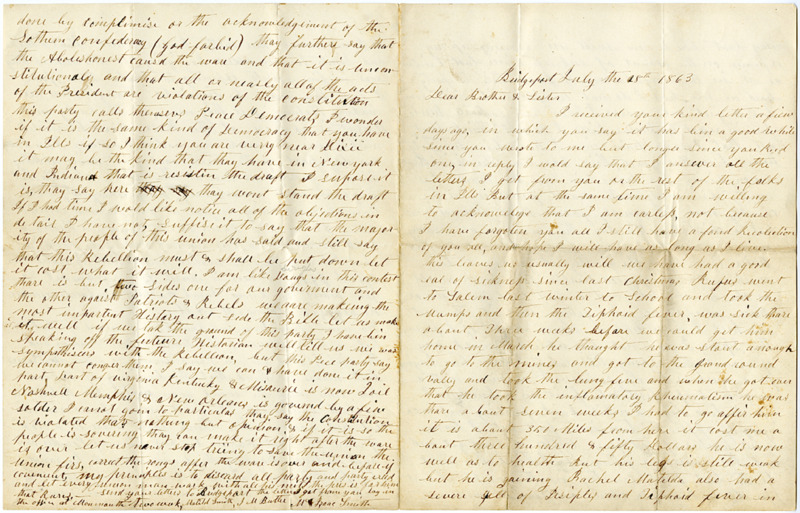 done by complimise or the acknowledgement of the
Sothern Confederacy (God forbid) thay further say that
the Abolishonest causd the ware and that it is uncon
stitutional, and that all or nearly all of the acts
of the President are violations of the constitution
this party calls themselves Peace Democrats I wonder
if it is the same kind of Democracy that you have
in Ills if so I think you are very near Dixii
it may be the kind that thay have in New york
and Indiana that is resistin the draft I supose it
is, thay say here thay wont stand the draft
If I had time I would like notice all of the objections in
detail I have not, suffis it to say that the major
ity of the people of this union has said and still say
that this Rebellion must & shall be put down let
it cost what it will. I am like in this contest
thare is but two sides one for our goverment and
the other against Patriots & Rebels we are making the
most important History out side the Bible let us make
it well if we tak the ground of this party I have bin
speaking off the future Historian will tell us we was
sympathisers with the rebellion, but this Pee party say
we cannot conquer them, I say we can & have done it in
part, part of virginia Kentucky & Missurie is now
Nashvill Memphis & New Orleans is governd by a fiew
solder I canot goin to particulars thay say the Constitution
is violated that's nothing but opinion & if it is so the
people is sovering thay can make it right after the ware
is over let us never stop trieng to save the union the
Union first, correct the rongs after the ware is over and
my prinsaples is to discard all party and party
and let every union man
that Karry send your letters to Bridgeport the letters I get from you lay in
the office at Monmouth two weeks Isaac Smith
Bridgeport July the 25th 1863
Dear Brother & Sister
I received youre kind letter a fiew
days ago, in which you say it has bin a good while
since you wrote to me but longer since you recd
one, in reply I wold say that I answer all the
letters I get from you or the rest of the folks
in Ills But at the same time I am willing
to acknowledge that I am carless, not because
I have forgoten you all I still have a fond Recolection
of you all, and hope I will have as long as I live.
this leaves us usually well we have had a good
eal of sickness since last Christmas Rufus went
to Salem last winter to School and took the
Mumps and then the Tiphoid fever, was sick thare
about three weeks before we could get him
home in March he thaught he was stout enough
to go to the mines and got to the Grand round
vally and took the lung fever and when he got over
that he took the inflamatory Rheumatism he was
thare about seven weeks I had to go after him
it is about 350 Miles from here it cost me a
bout three hundred & fifty Dollars he is now
well as to health But his leg is still weak
but he is gaining Rachel Matilda also had a
severe spell of Irsiples and Tiphoid fever in